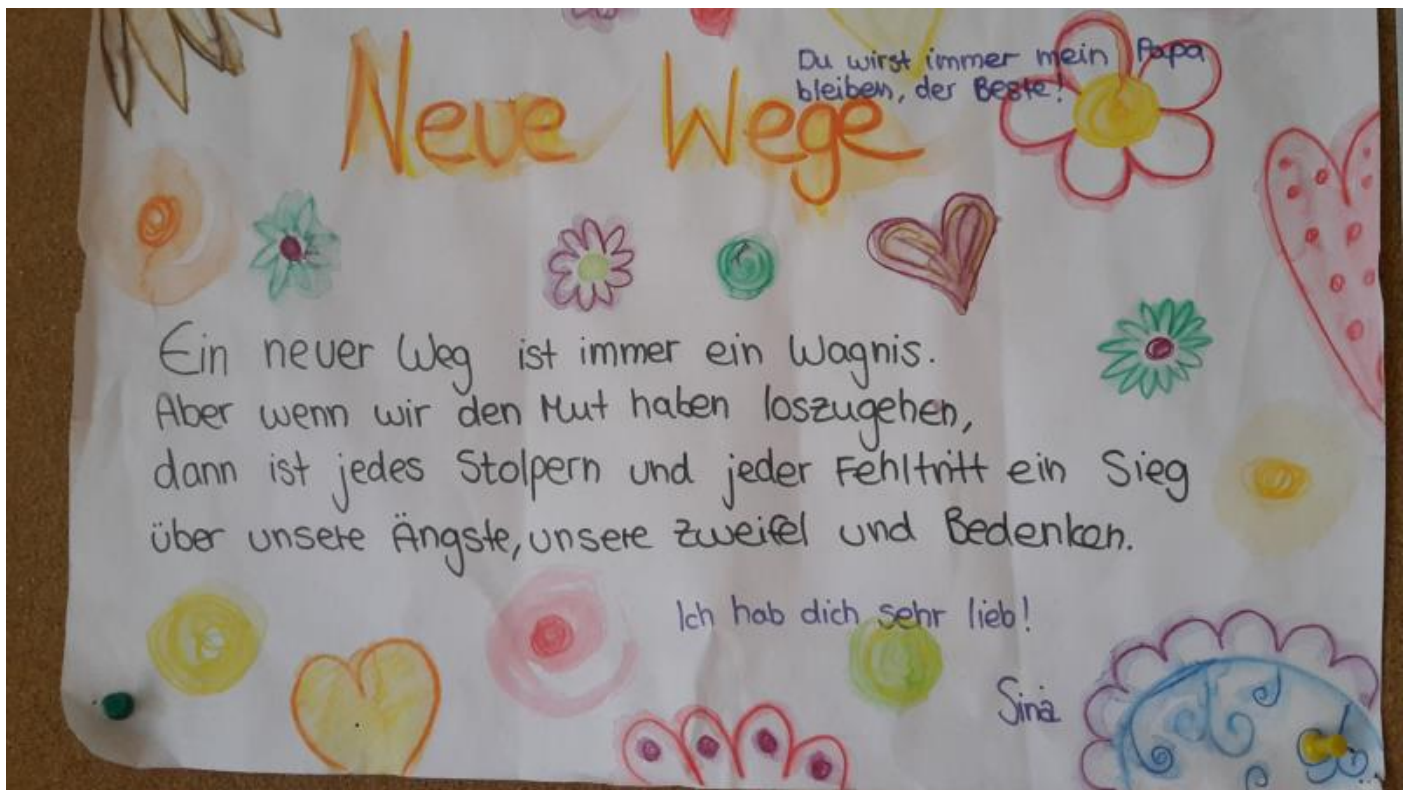 Neue Wege
Du wirst immer mein Papa
bleiben, der Beste!
Ein neuer Weg ist immer ein Wagnis.
Aber wenn wir den Mut haben loszugehen,
dann ist jedes Stolpern und jeder Fehltritt ein Sieg
über unsere Ängste, unsere Zweifel und Bedenken.
Ich hab dich sehr lieb!
Sina